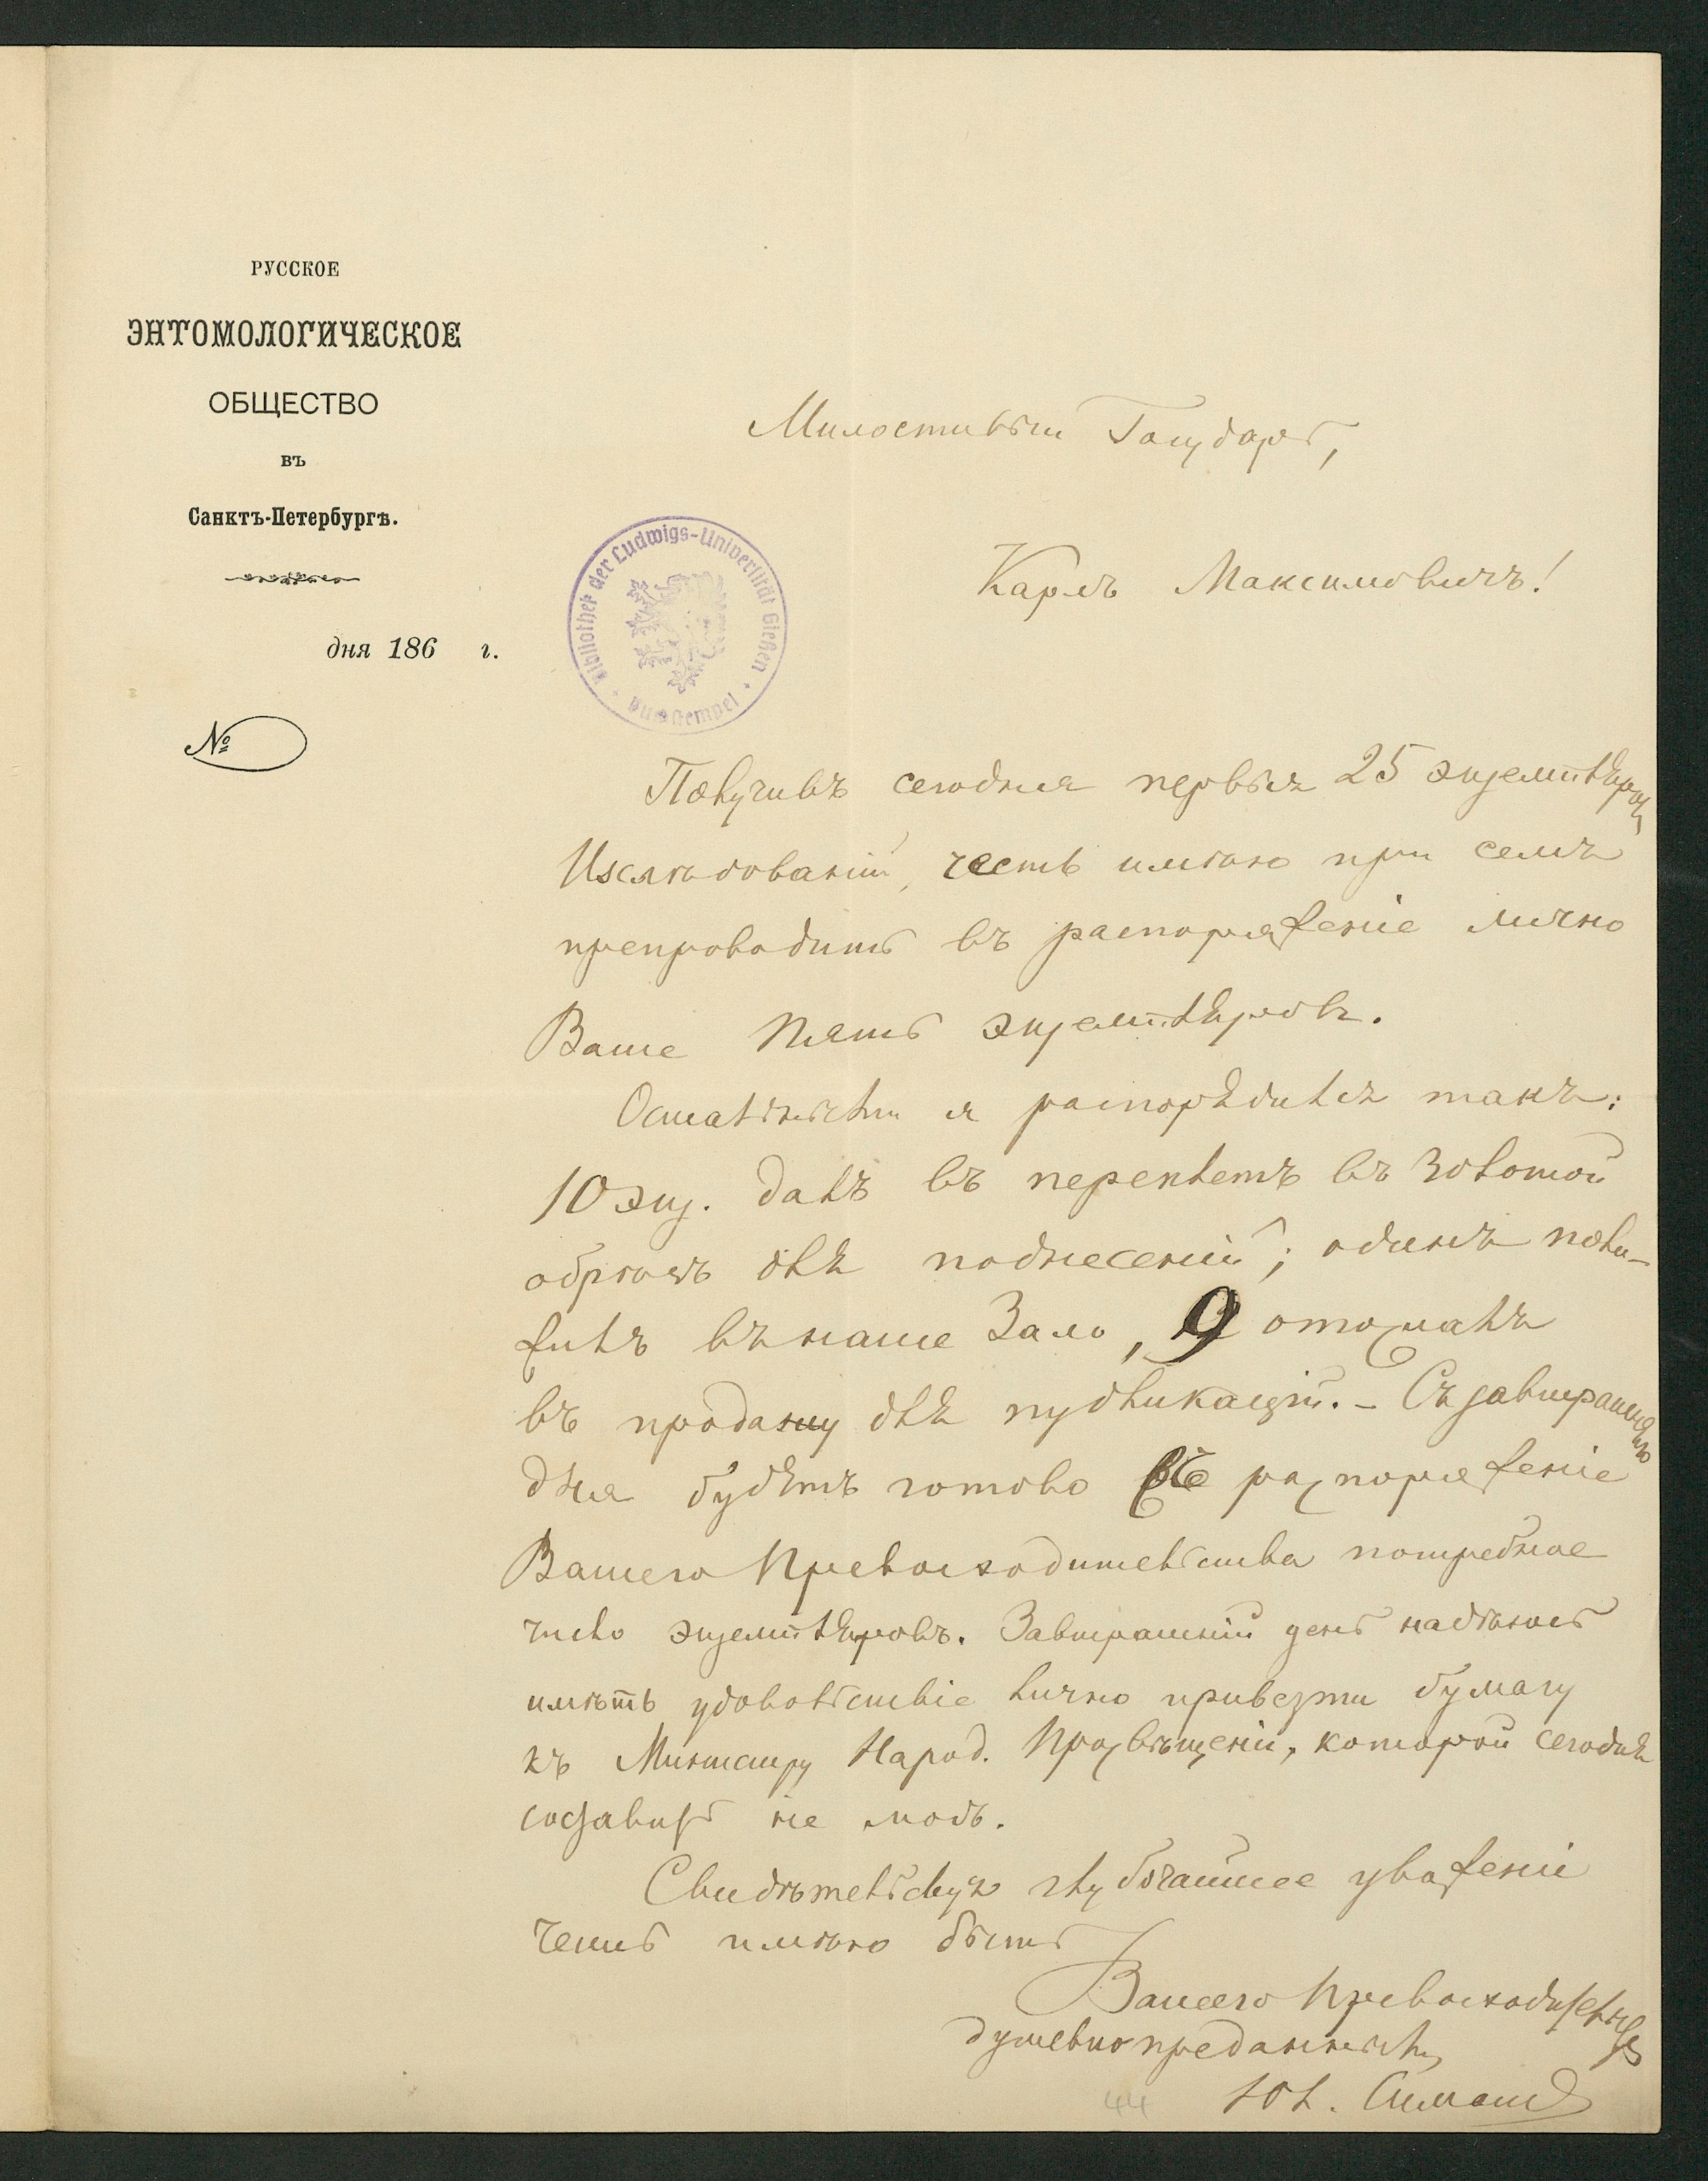 РУССКОЕ
ЭНТОМОЛОГИЧЕСКОЕ
ОБЩЕСТВО
въ
Санктъ-Петербургѣ.
дня 186 г.
№
Bibliothek der Ludwigs-Universität Gießen
Милостивый Государь,
Карлъ Максимовичъ!
Получивъ сегодня первыя 25 экземпляровъ
Изслѣдованій, честь имѣю при семъ
препроводить въ распоряженіе лично
Ваше пять экземпляровъ.
Остальными я распорядился такъ:
10 экз. далъ въ переплетъ въ золотой
обрѣзъ для поднесеній; одинъ поло-
жилъ въ наше Зало, 9 отослалъ
въ продажу для публикацій. – Съ завтрашняго
дня будетъ готово въ распоряженіе
Вашего Превосходительства потребное
число экземпляровъ. Завтрашній день надѣюсь
имѣть удовольствіе лично привезти бумагу
къ Министру Народ. Просвѣщенія, которой сегодня
составить не могъ.
Свидѣтельствуя глубочайшее уваженіе
честь имѣю быть
Вашего Превосходительства
душевно преданный
Юл. Симаш
44